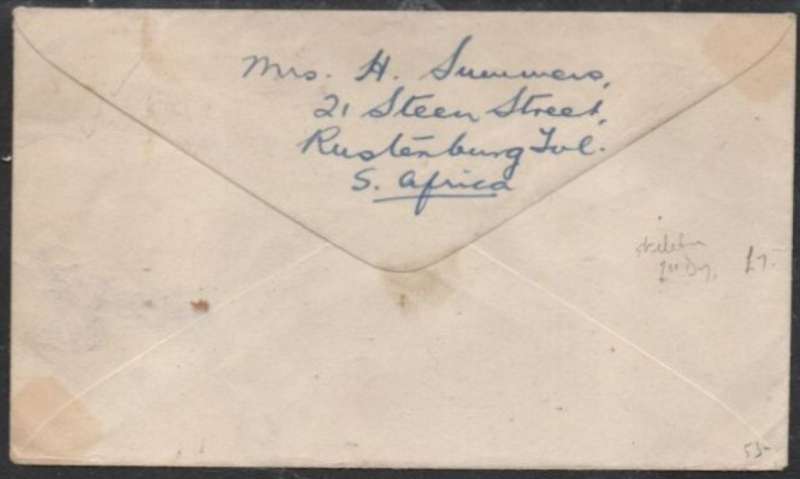 Mrs. H. Summers,
21 Steen Street,
Rustenburg Tvl.
S. Africa
£7-
53-